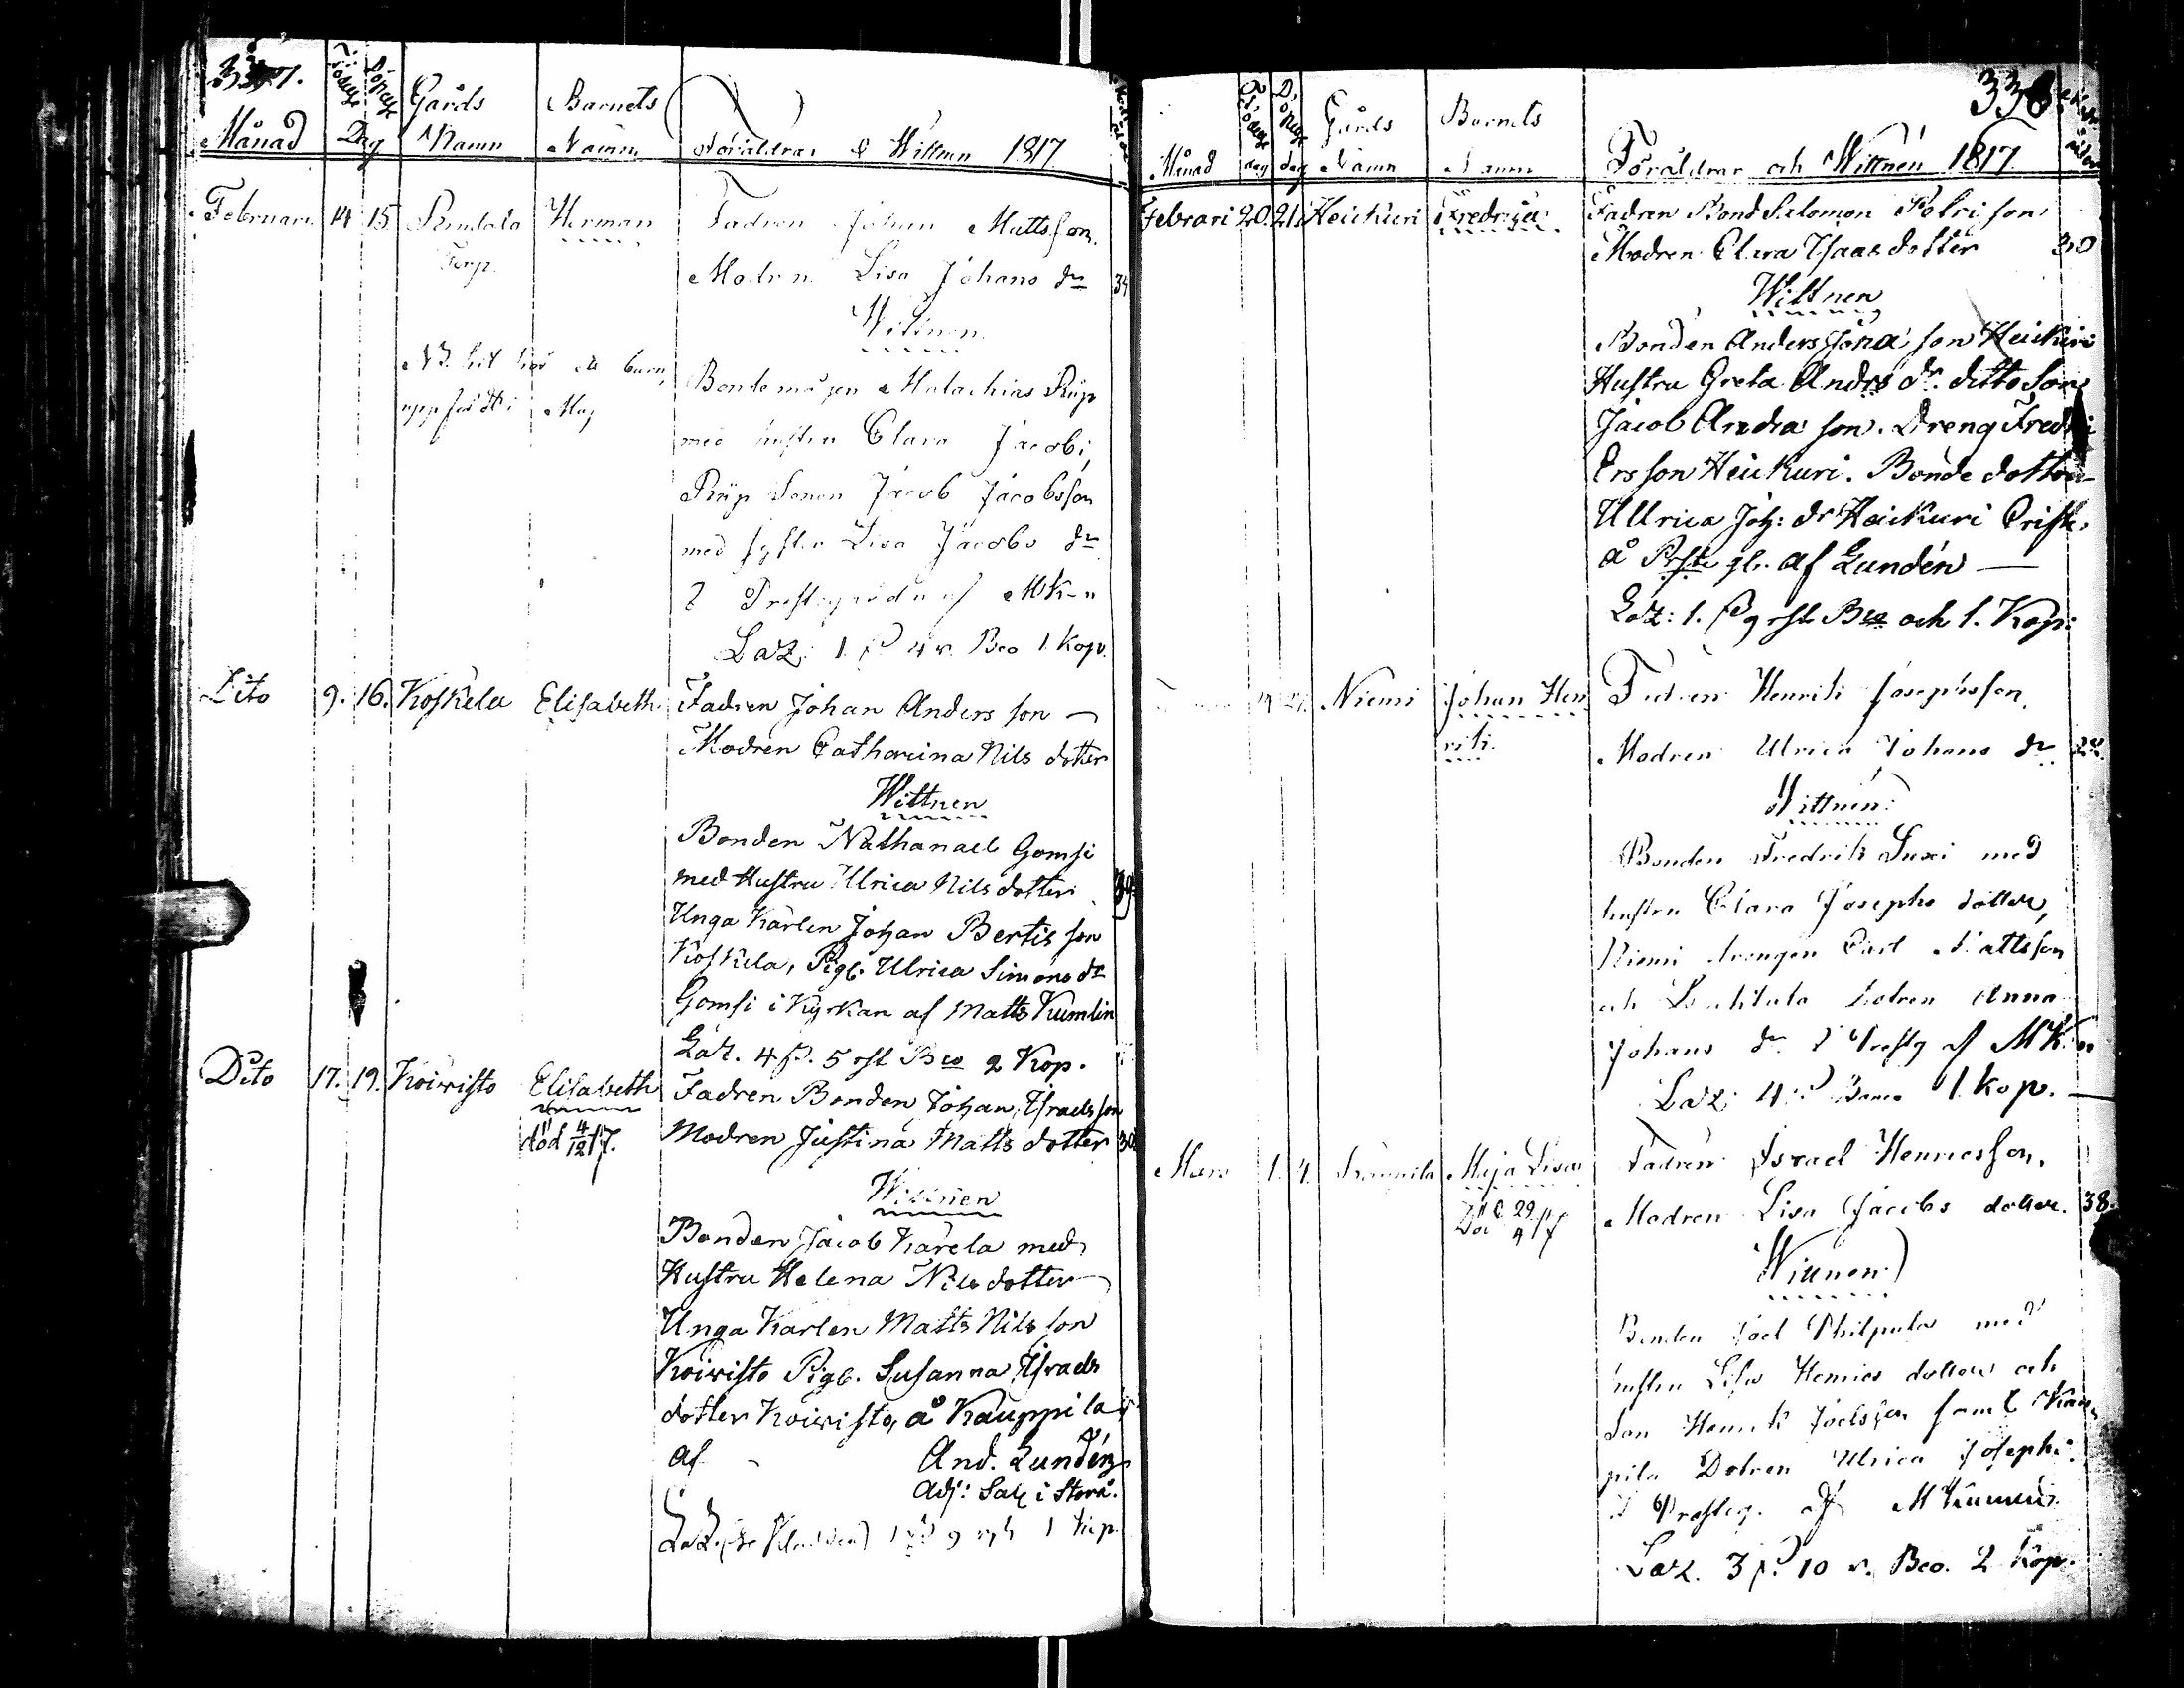 Månad Födelse Döpelse Dag Gårds Namn Barnets Namn Föräldrar & Wittnen 1817
Februari 14 15 Torp Herman Fadren Johan Mattsson
Modren Lisa Johans dr 34
Wittnen
NB. hit hör et barn,
uppfördt i Maj
Bondemågen Malachias Riip
med hustru Clara Jacobi,
Riip Sonen Jacob Jacobsson
med syster Lisa Jacobs dr
Laz: 1 p 4 r. Bco 1 kop.
Dito 9. 16. Koskela Elisabeth Fadren Johan Anders son
Modren Catharina Nils dotter
Wittnen
Bonden Nathanael Gomsi
med Hustru Ulrica Nils dotter 39
Unga Karlen Johan Bertils son
Koskela, Pig. Ulrica Simons dr
Gomsi i Kyrkan af Matts Kumlin
Laz. 4 p. 5 rst Bco 2 Kop.
Dito 17. 19. Koivisto Elisabeth Fadren Bonden Johan Israels son
död 4/12 17. Modren Justina Matts dotter 30
Wittnen
Bonden Jacob Karela med
Hustru Helena Nils dotter
Unga Karlen Matts Nils son
Koivisto Pig. Susanna Israels
dotter Koivisto, å Kauppila
af And. Lundén
Adj: Sac i Storå.
Laz. 1 9 1 kop.
338
Månad Födelse dag Döpelse dag Gårds Namn Barnets Namn Föräldrar och Wittnen 1817
Februari 20. 21. Heickuri Fredrica Fadren Bond Salomon Petri son
Modren Clara Isaacs dotter 30
Wittnen
Bonden Anders Jona son Heickuri
Hustru Greta Andrs dr. ditto Son
Jacob Andra son. Dreng Fredri
Ersson Heickuri. Bonde dotter
Ullrica Joh: dr Heickuri Crist.
å Prste g. af Lundén
Laz: 1. p 9 rst Bco och 1. Kop:
Niemi Johan Hen Fadren Henrik Josephsson
rik. Modren Ulrica Johans dr
Wittnen
Bonden Fredrik Luxi med
hustru Clara Josephs dotter,
Niemi drengen Carl Mattsson
och dotren Anna
Johans dr i Prestg af MK
Laz: 4 p Banco 1 kop.
Mars 1. 4. Maja Lisa Fadren Israel Henricsson,
Död 29/4 17 Modren Lisa Jacobs dotter. 38.
Wittnen
Bonden Joel Philpula med
hustru Lisa Henrics dotter och
Son Henrik Joelsson samt Kaup
pila Dotren Ulrica Josephi
i Presteg. af M Kumlin
Laz. 3 p. 10 r. Bco. 2 kop.